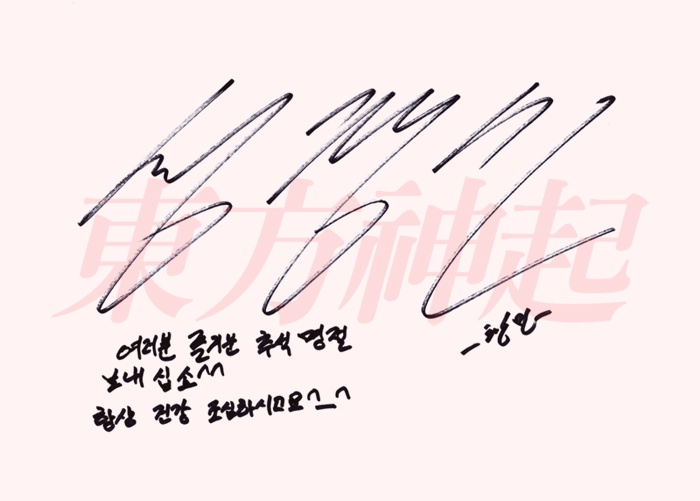 東方神起
여러분 즐거운 추석 명절
보내십소^^
항상 건강 조심하시고요^_^
-창민-